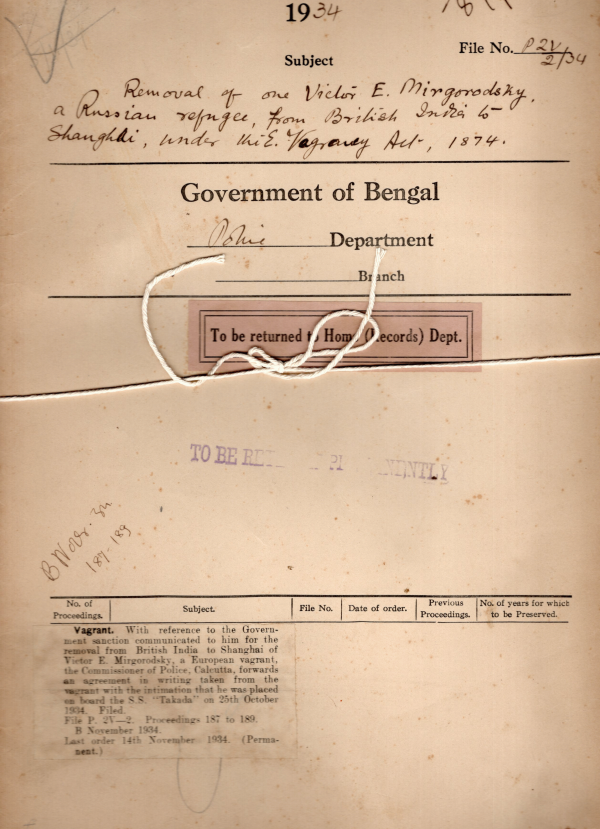 1934
File No. P2V/2/34
Subject
Removal of one Victor E. Mirgorodsky,
a Russian refugee, from British India to
Shanghai, under the E. Vagrancy Act, 1874.
Government of Bengal
Police Department
Branch
To be returned to Home (Records) Dept.
TO BE
B Novr. 34
187-189
No. of Proceedings. Subject. File No. Date of order. Previous Proceedings. No. of years for which to be Preserved.
Vagrant. With reference to the Govern-
ment sanction communicated to him for the
removal from British India to Shanghai of
Victor E. Mirgorodsky, a European vagrant,
the Commissioner of Police, Calcutta, forwards
an agreement in writing taken from the
vagrant with the intimation that he was placed
on board the S.S. "Takada" on 25th October
1934. Filed.
File P. 2V—2. Proceedings 187 to 189.
B November 1934.
Last order 14th November 1934. (Perma-
nent.)